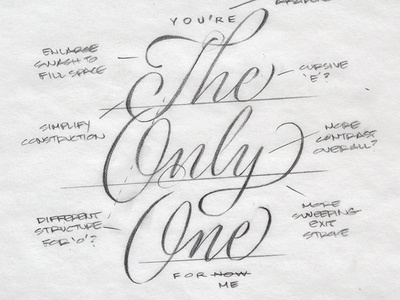 YOU'RE
ENLARGE
SWASH TO
FILL SPACE
The
CURSIVE
'E'?
SIMPLIFY
CONSTRUCTION
Only
MORE
CONTRAST
OVERALL?
DIFFERENT
STRUCTURE
FOR 'O'?
One
MORE
SWEEPING
EXIT
STROKE
FOR NOW
ME